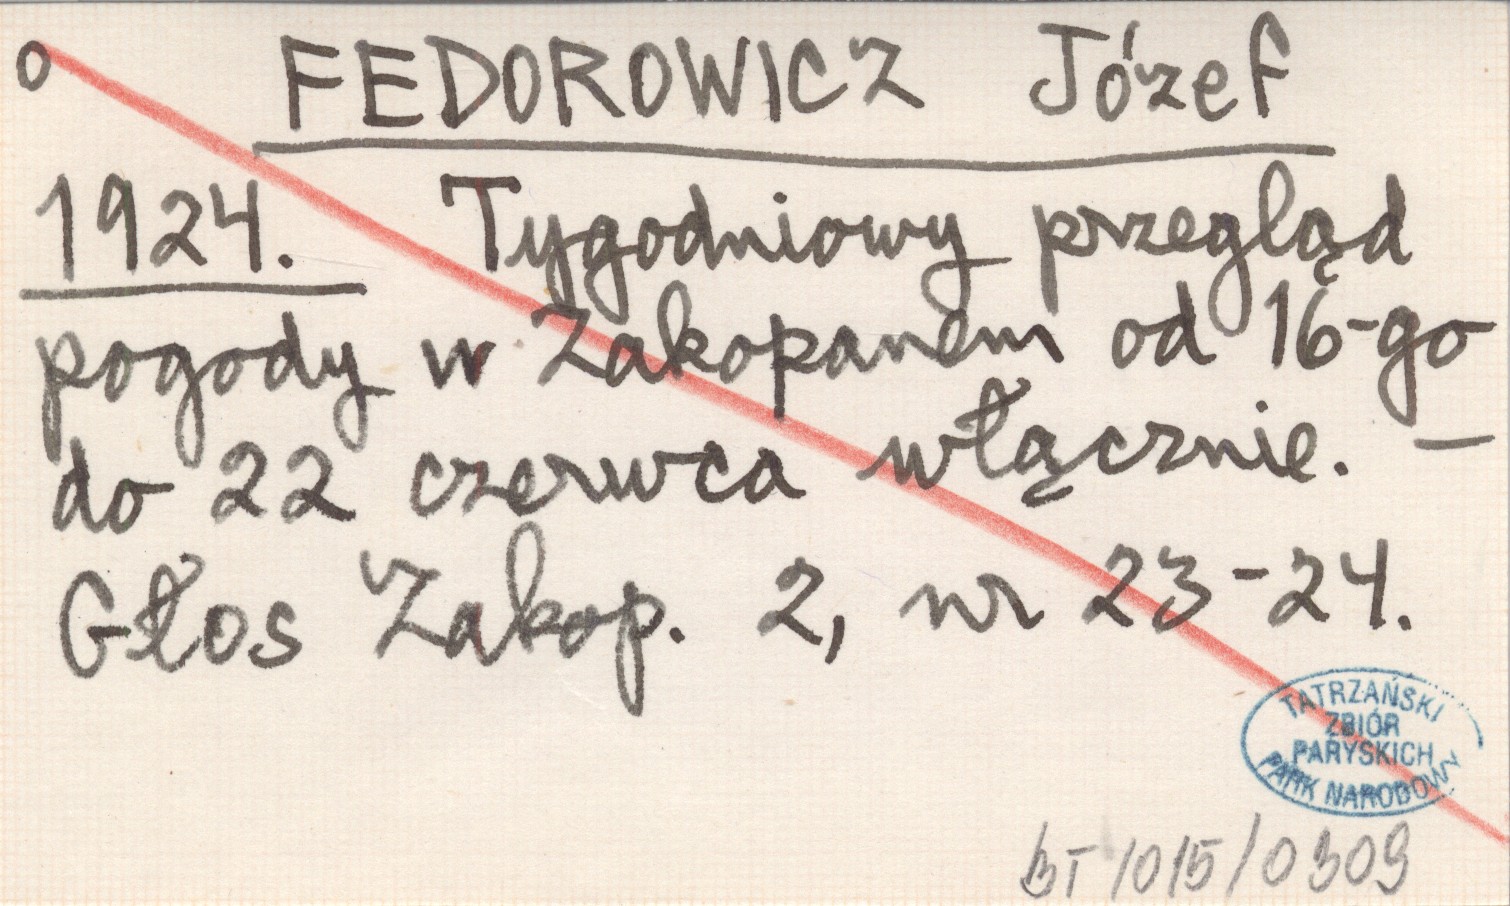 o FEDOROWICZ Józef
1924. Tygodniowy przegląd
pogody w Zakopanem od 16-go
do 22 czerwca włącznie. —
Głos Zakop. 2, nr 23-24.
TATRZAŃSKI
ZBIÓR
PARYSKICH
PARK NARODOWY
BT/015/0309